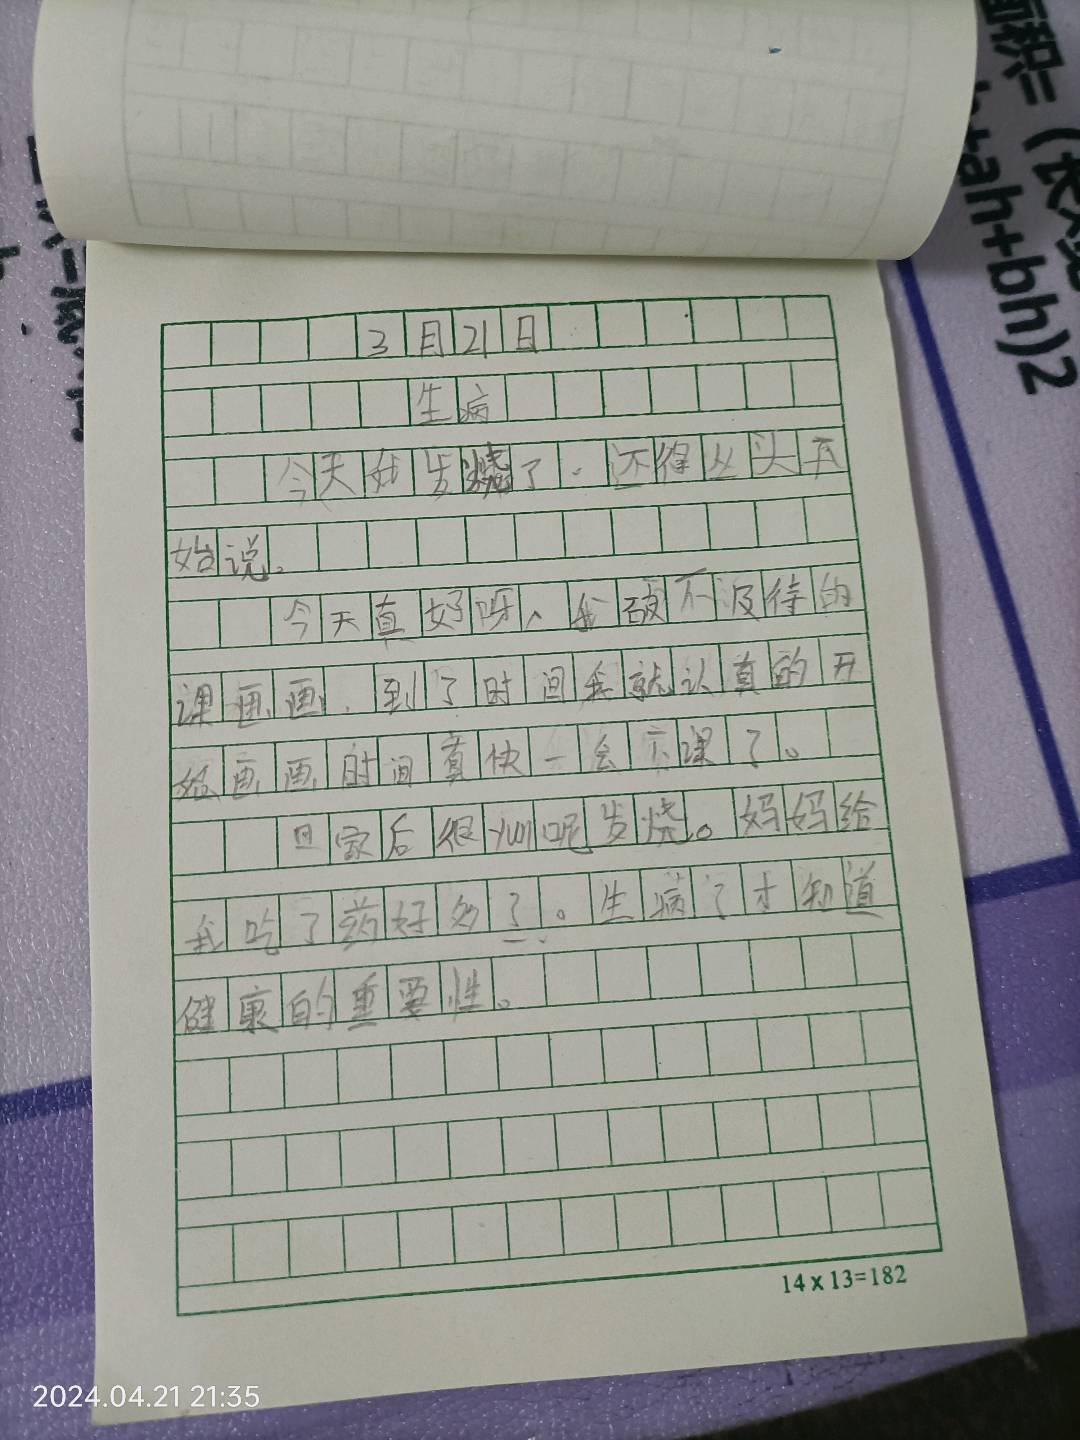 面积=(长×宽
+ah+bh)2
3月21日
生病
今天我发烧了。还得从头开
始说。
今天真好呀、我破不及待的
课画画、到了时间我就认真的开
始画画时间真快一会下课了。
回家后很    呢发烧。妈妈给
我吃了药好多了。生病了才知道
健康的重要性。
14×13=182
2024.04.21 21:35